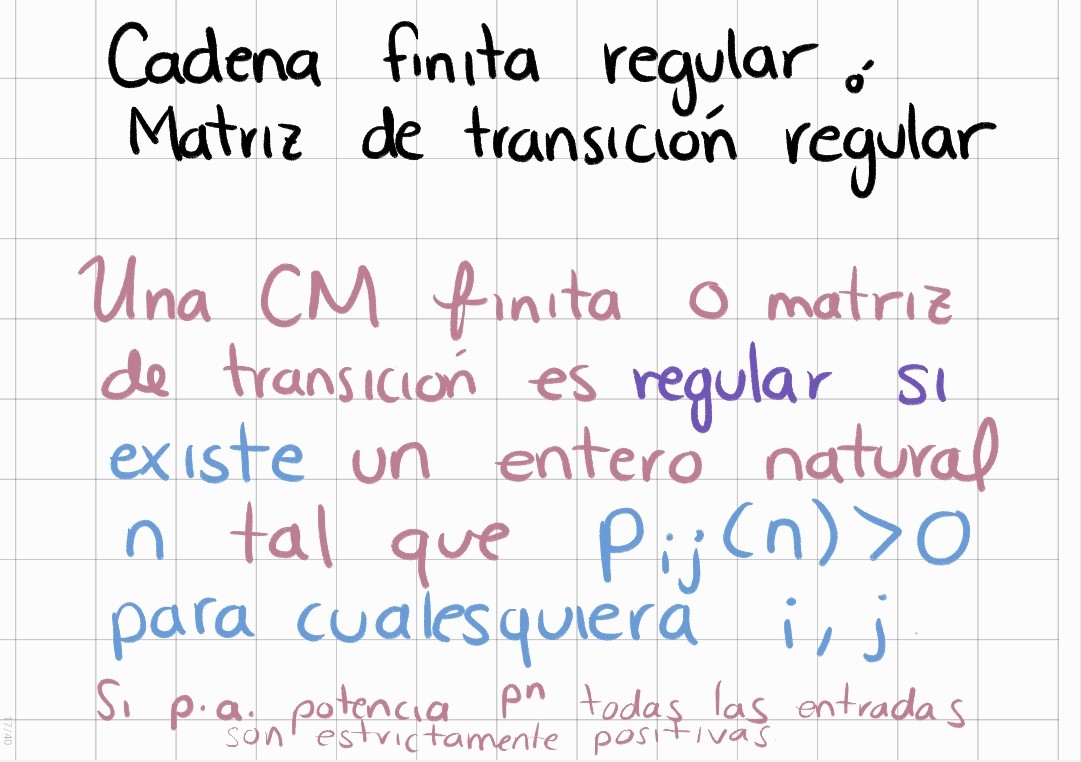 Cadena finita regular ó
Matriz de transición regular
Una CM finita o matriz
de transición es regular si
existe un entero natural
n tal que Pij(n)>0
para cualesquiera i, j
Si p.a. potencia pⁿ todas las entradas
son estrictamente positivas.
17/40